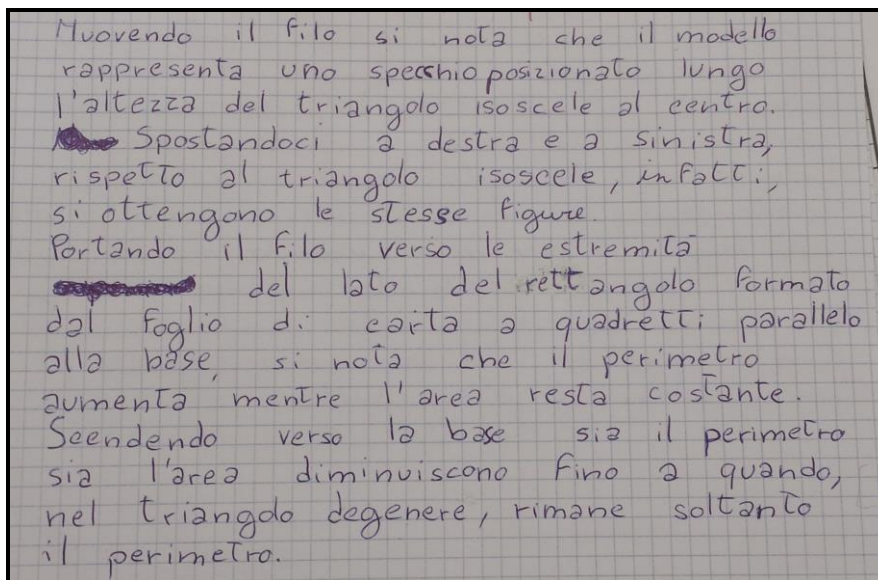 Muovendo il filo si nota che il modello
rappresenta uno specchio posizionato lungo
l'altezza del triangolo isoscele al centro.
Spostandoci a destra e a sinistra,
rispetto al triangolo isoscele, infatti,
si ottengono le stesse figure.
Portando il filo verso le estremità
del lato del rettangolo formato
dal foglio di carta a quadretti parallelo
alla base, si nota che il perimetro
aumenta mentre l'area resta costante.
Scendendo verso la base sia il perimetro
sia l'area diminuiscono fino a quando,
nel triangolo degenere, rimane soltanto
il perimetro.